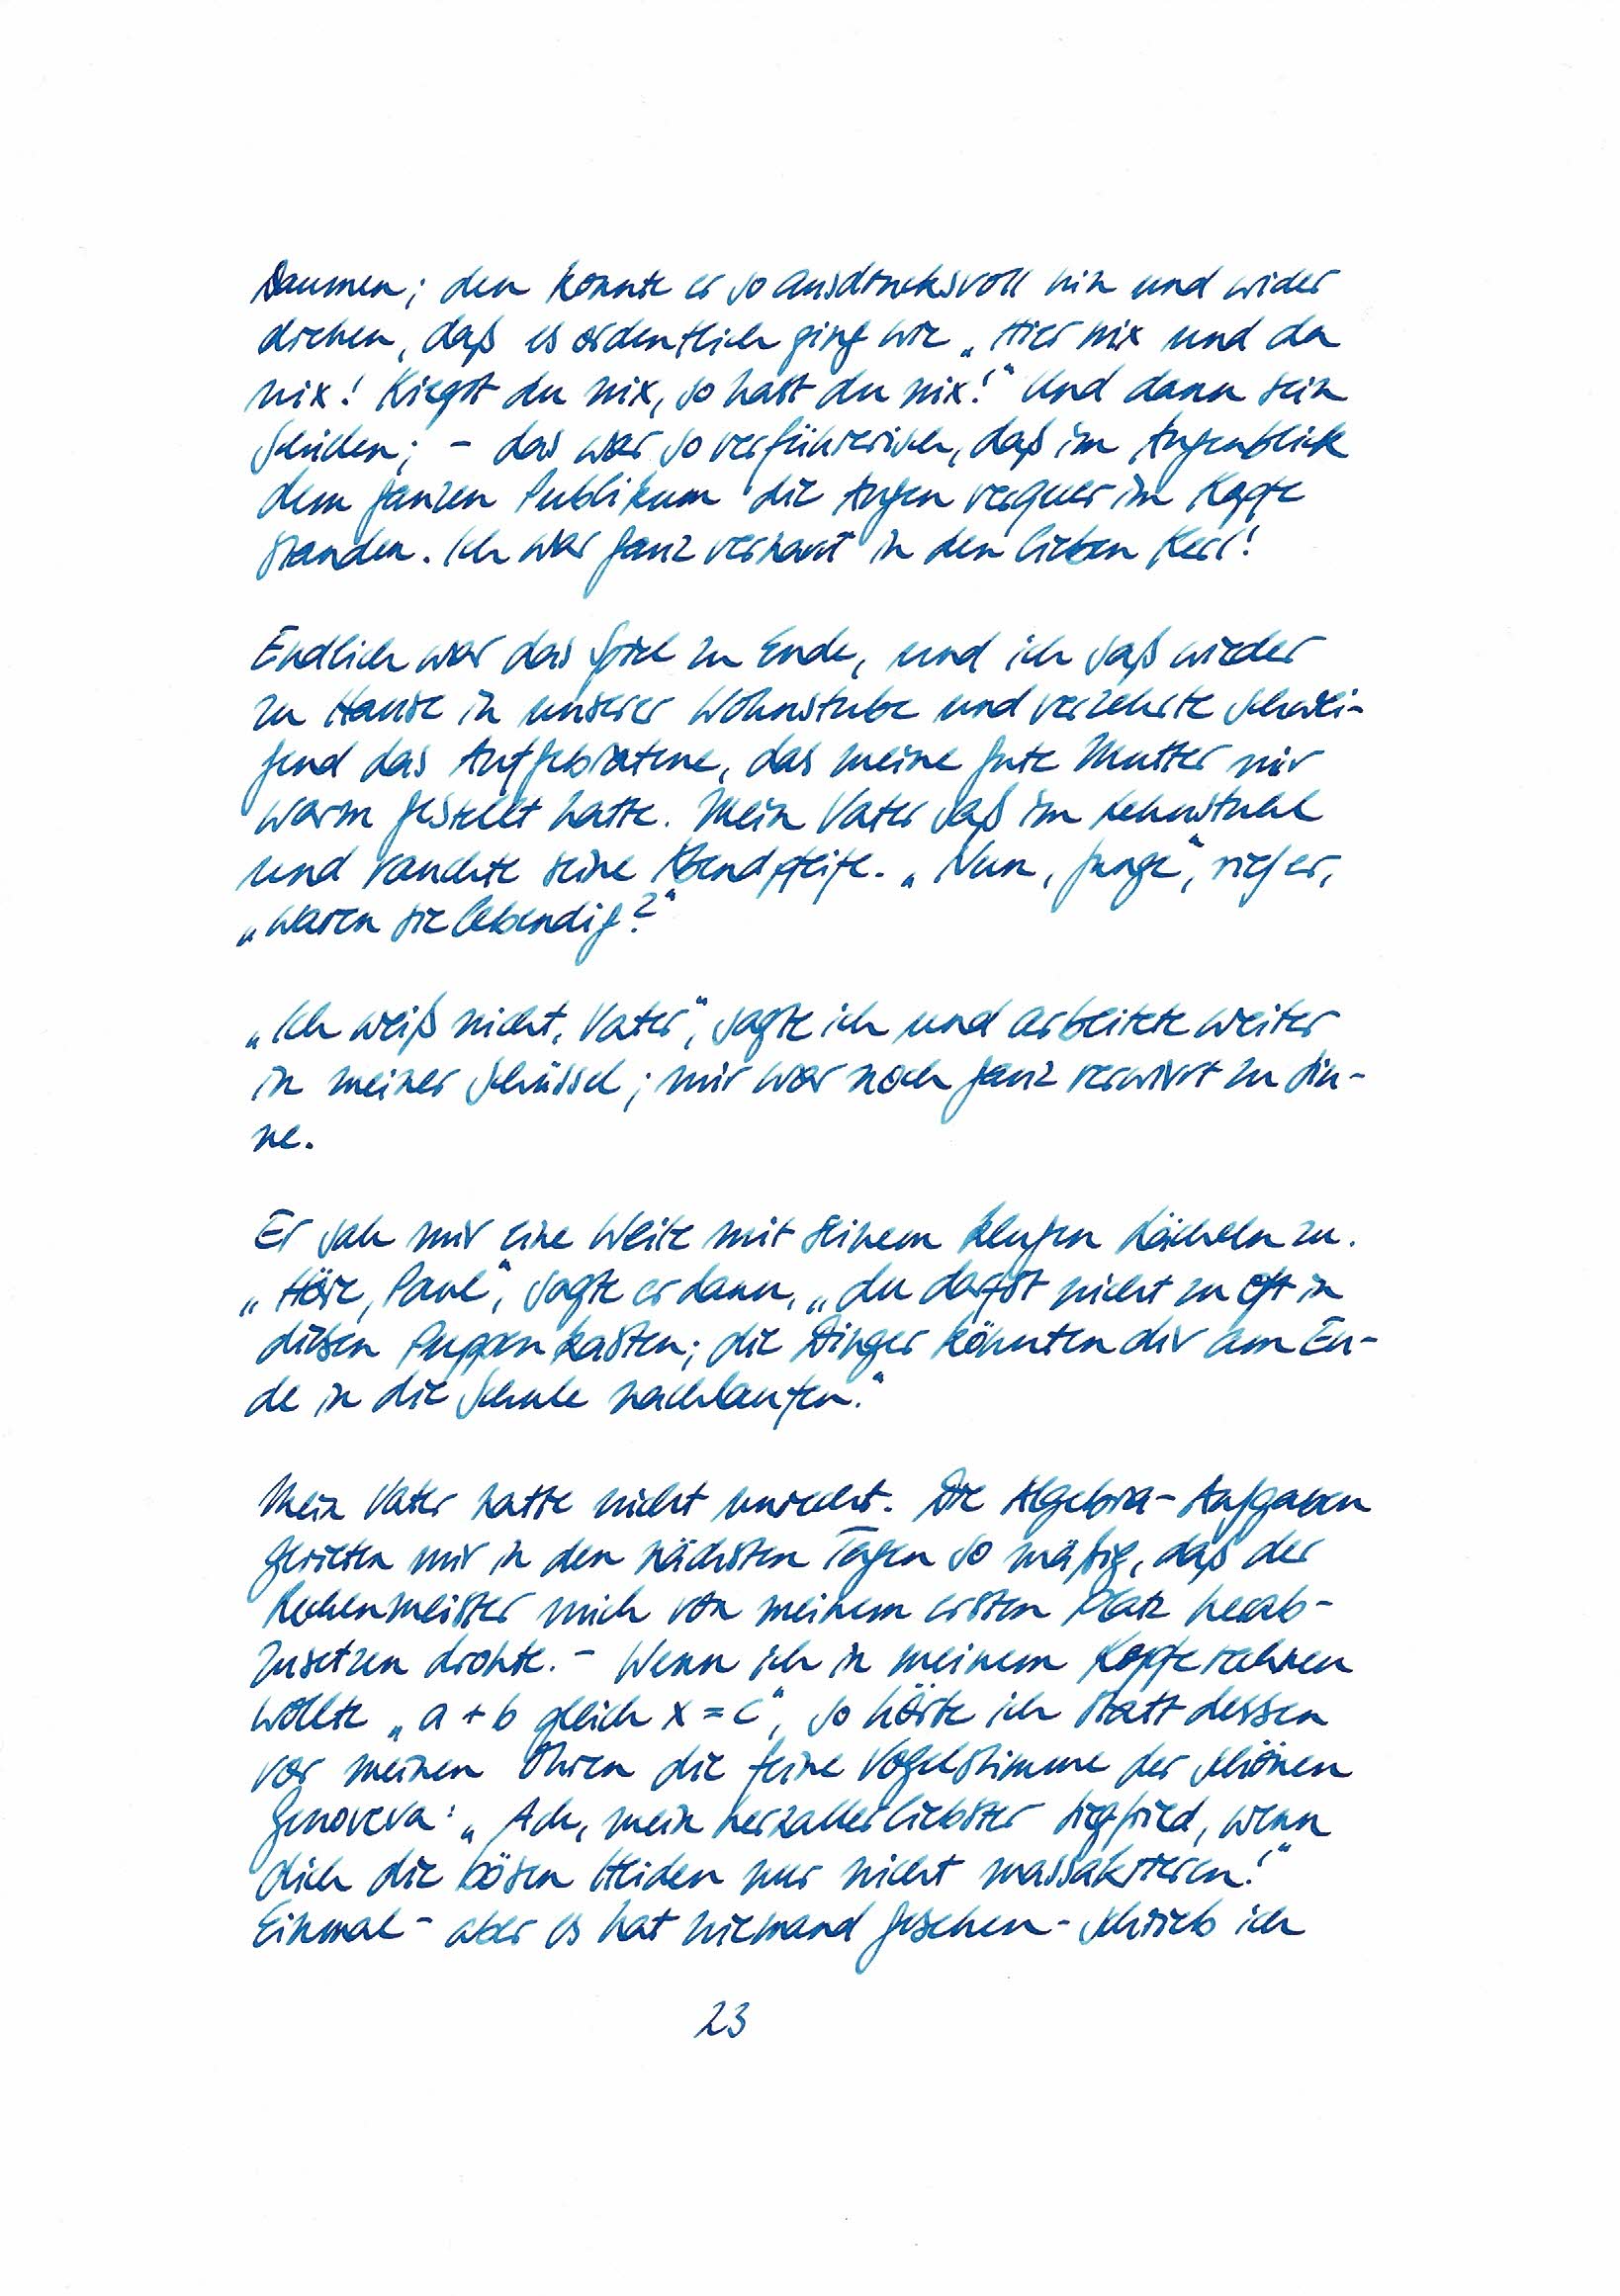 Daumen; den konnte er so ausdrucksvoll hin und wider
drehen, daß es ordentlich ging wie „Hier nix und da
nix! Kriegst du nix, so hast du nix!“ Und dann sein
Schielen; – das war so verführerisch, daß im Augenblick
dem ganzen Publikum die Augen verquer im Kopfe
standen. Ich war ganz vernarrt in den lieben Kerl!
Endlich war das Spiel zu Ende, und ich saß wieder
zu Hause in unserer Wohnstube und verzehrte schwei-
gend das Aufgebratene, das meine gute Mutter mir
warm gestellt hatte. Mein Vater saß im Lehnstuhl
und rauchte seine Abendpfeife. „Nun, Junge“, rief er,
„waren sie lebendig?“
„Ich weiß nicht, Vater“, sagte ich und arbeitete weiter
in meiner Schüssel; mir war noch ganz verwirrt zu Sin-
ne.
Er sah mir eine Weile mit seinem klugen Lächeln zu.
„Höre, Paul“, sagte er dann, „du darfst nicht zu oft in
diesen Puppenkasten; die Dinger könnten dir am En-
de in die Schule nachlaufen.“
Mein Vater hatte nicht unrecht. Die Algebra-Aufgaben
gerieten mir in den nächsten Tagen so mäßig, daß der
Rechenmeister mich von meinem ersten Platz herab-
zusetzen drohte. – Wenn ich in meinem Kopfe rechnen
wollte „a + b gleich x = c“, so hörte ich statt dessen
vor meinen Ohren die feine Vogelstimme der schönen
Genoveva: „Ach, mein herzallerliebster Siegfried, wenn
dich die bösen Heiden nur nicht massakrieren!“
Einmal – aber es hat niemand gesehen – schrieb ich
23